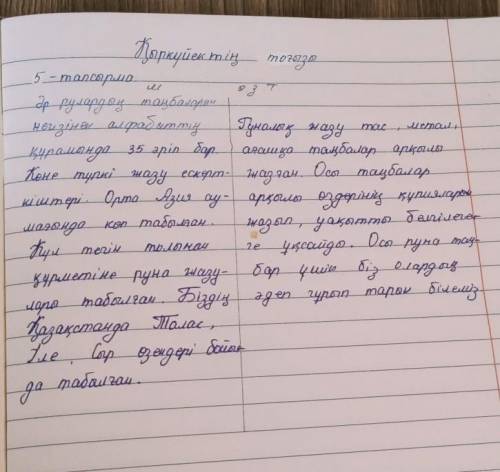 Қыркүйектің тоғызы
5-тапсырма.
м
Әр рулардың таңбаларын
негізінен алфабиттің
құрамында 35 әріп бар.
Көне түркі жазу ескерт-
кіштері. Орта Азия ау-
мағында көп табылған.
Күл тегін
құрметіне руна жазу-
лары табылған. Біздің
Қазақстанда Талас,
Іле, Сыр өзендері бойын-
да табалған.
ө з т
Руналық жазу тас, метал,
ағашқа таңбалар арқылы
жазған. Осы таңбалар
арқылы өздерінің құпияларын
жазып, уақытты белгілеген-
ге ұқсайды. Осы руна таң-
бар үшін біз олардың
әдеп ғұрып тарын білеміз